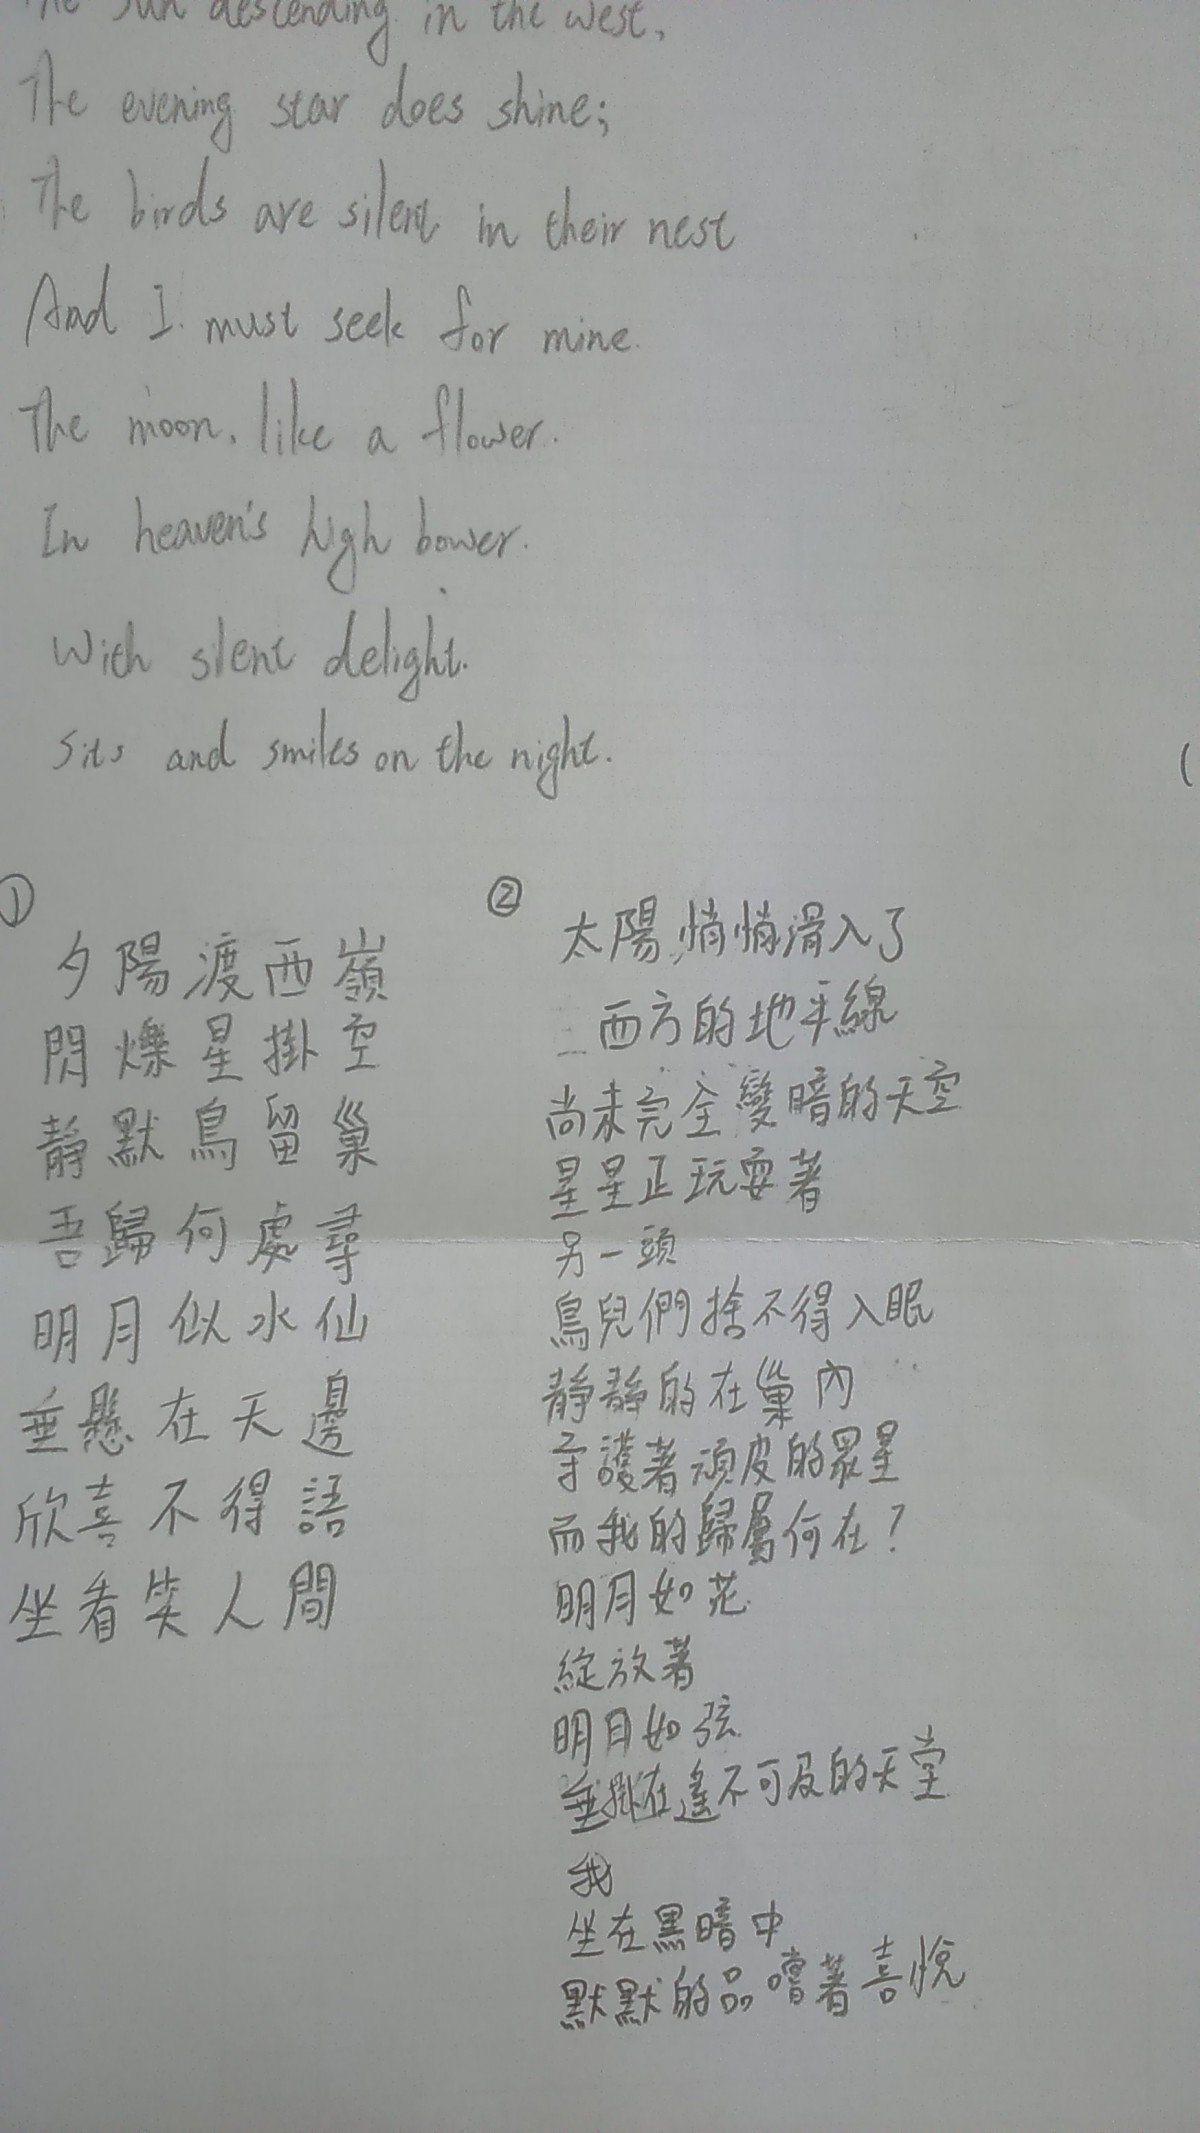 The sun descending in the west,
The evening star does shine;
The birds are silent in their nest
And I must seek for mine.
The moon, like a flower.
In heaven's high bower.
With silent delight.
Sits and smiles on the night.
①
夕陽渡西嶺
閃爍星掛空
靜默鳥留巢
吾歸何處尋
明月似水仙
垂懸在天邊
欣喜不得語
坐看笑人間
②
太陽,悄悄滑入了
西方的地平線
尚未完全變暗的天空
星星正玩耍著
另一頭
鳥兒們捨不得入眠
靜靜的在巢內
守護著頑皮的眾星
而我的歸屬何在?
明月如花
綻放著
明月如弦
垂掛在遙不可及的天堂
我
坐在黑暗中
默默的品嚐著喜悅
(